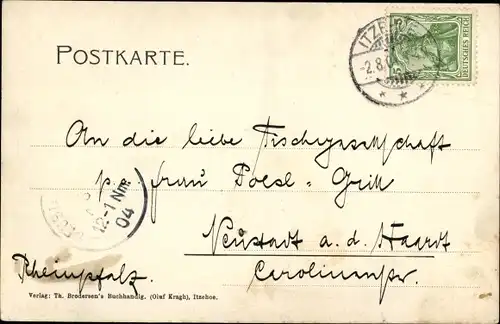 POSTKARTE.
ITZEHOE
2.8.
DEUTSCHES REICH
An die liebe Tischgesellschaft
p. Frau Poesl-Grill
Neustadt a. d. Haardt
Carolinenstr.
Rheinpfalz.
12-1 Nm.
04
Verlag: Th. Brodersen's Buchhandlg. (Oluf Kragh), Itzehoe.